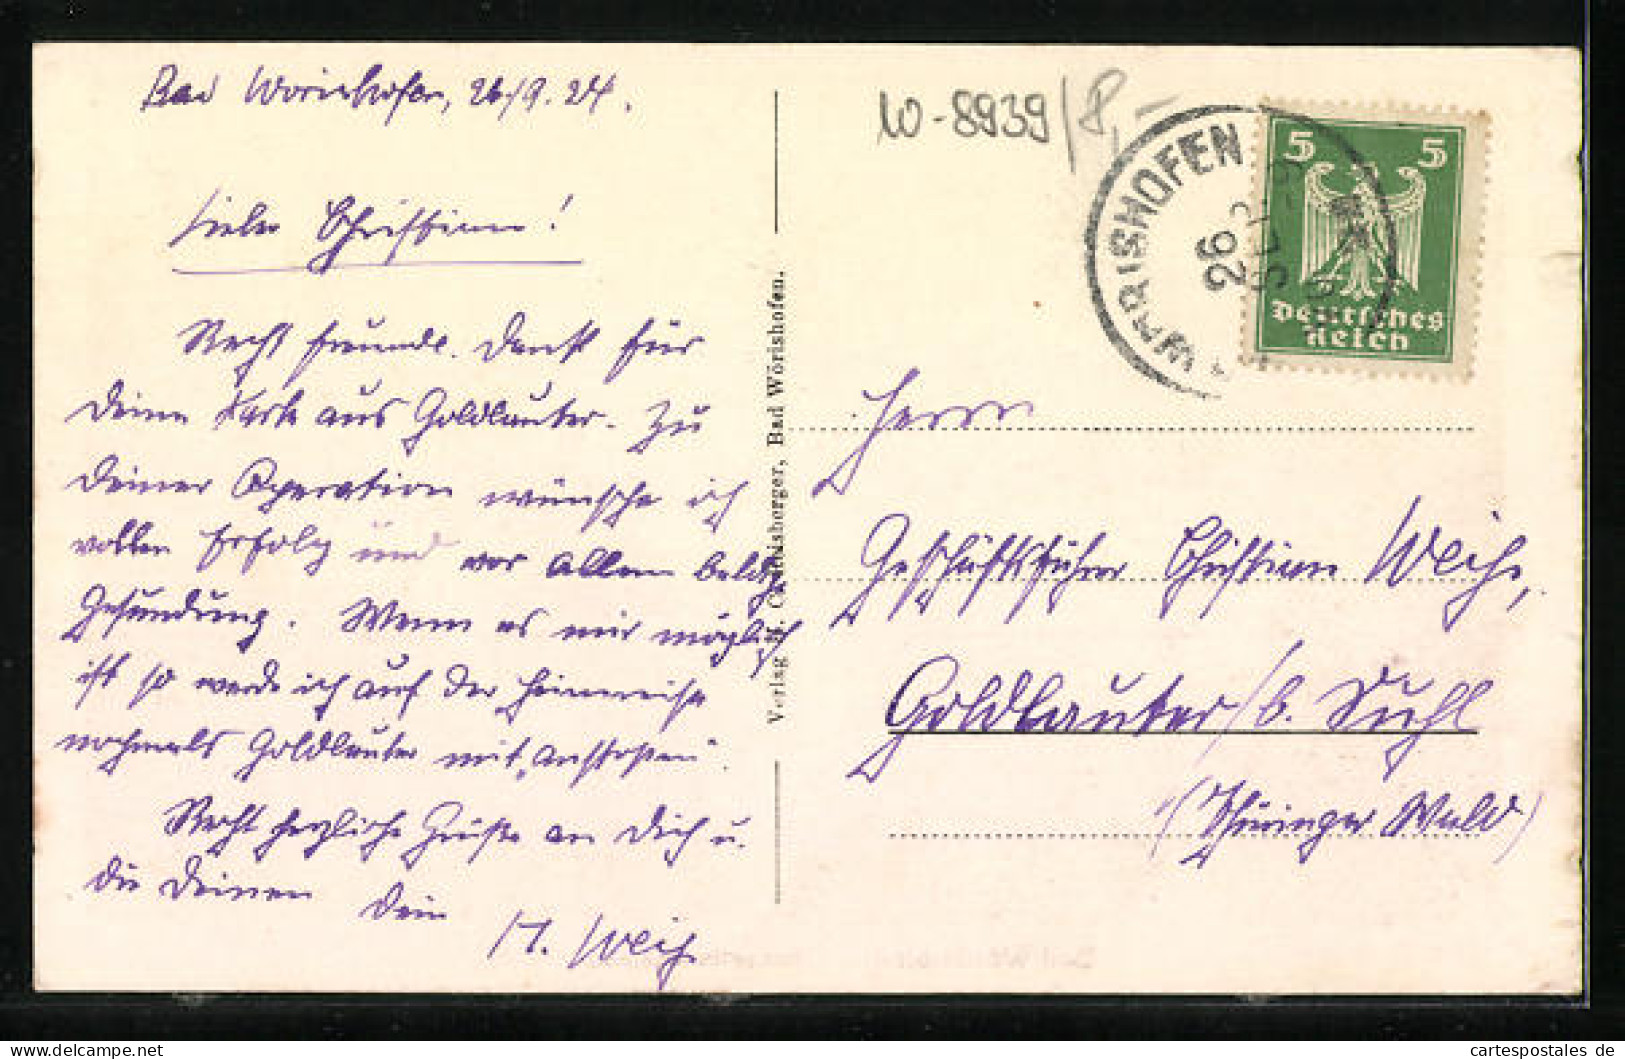 Bad Worishofen, 26/9.24.
Lieber Christian!
Recht freundl. Dank für
Deine Karte aus Goldlauter. Zu
Deiner Operation wünsche ich
vollen Erfolg und vor allem baldige
Gesundung. Wenn es mir möglich
ist so werde ich auf der Heimreise
nochmals Goldlauter mit
Recht herzliche Grüße an Dich u.
die Deinen Dein
H. Weih.
Verlag H. Bad Wörishofen.
W-8939/8,-
WÖRISHOFEN
26
5 5
Deutsches
Reich
Herrn
Geschäftsführer Christian Weih,
Goldlauter/b. Suhl
(Thüringer Wald)
cartespostales de